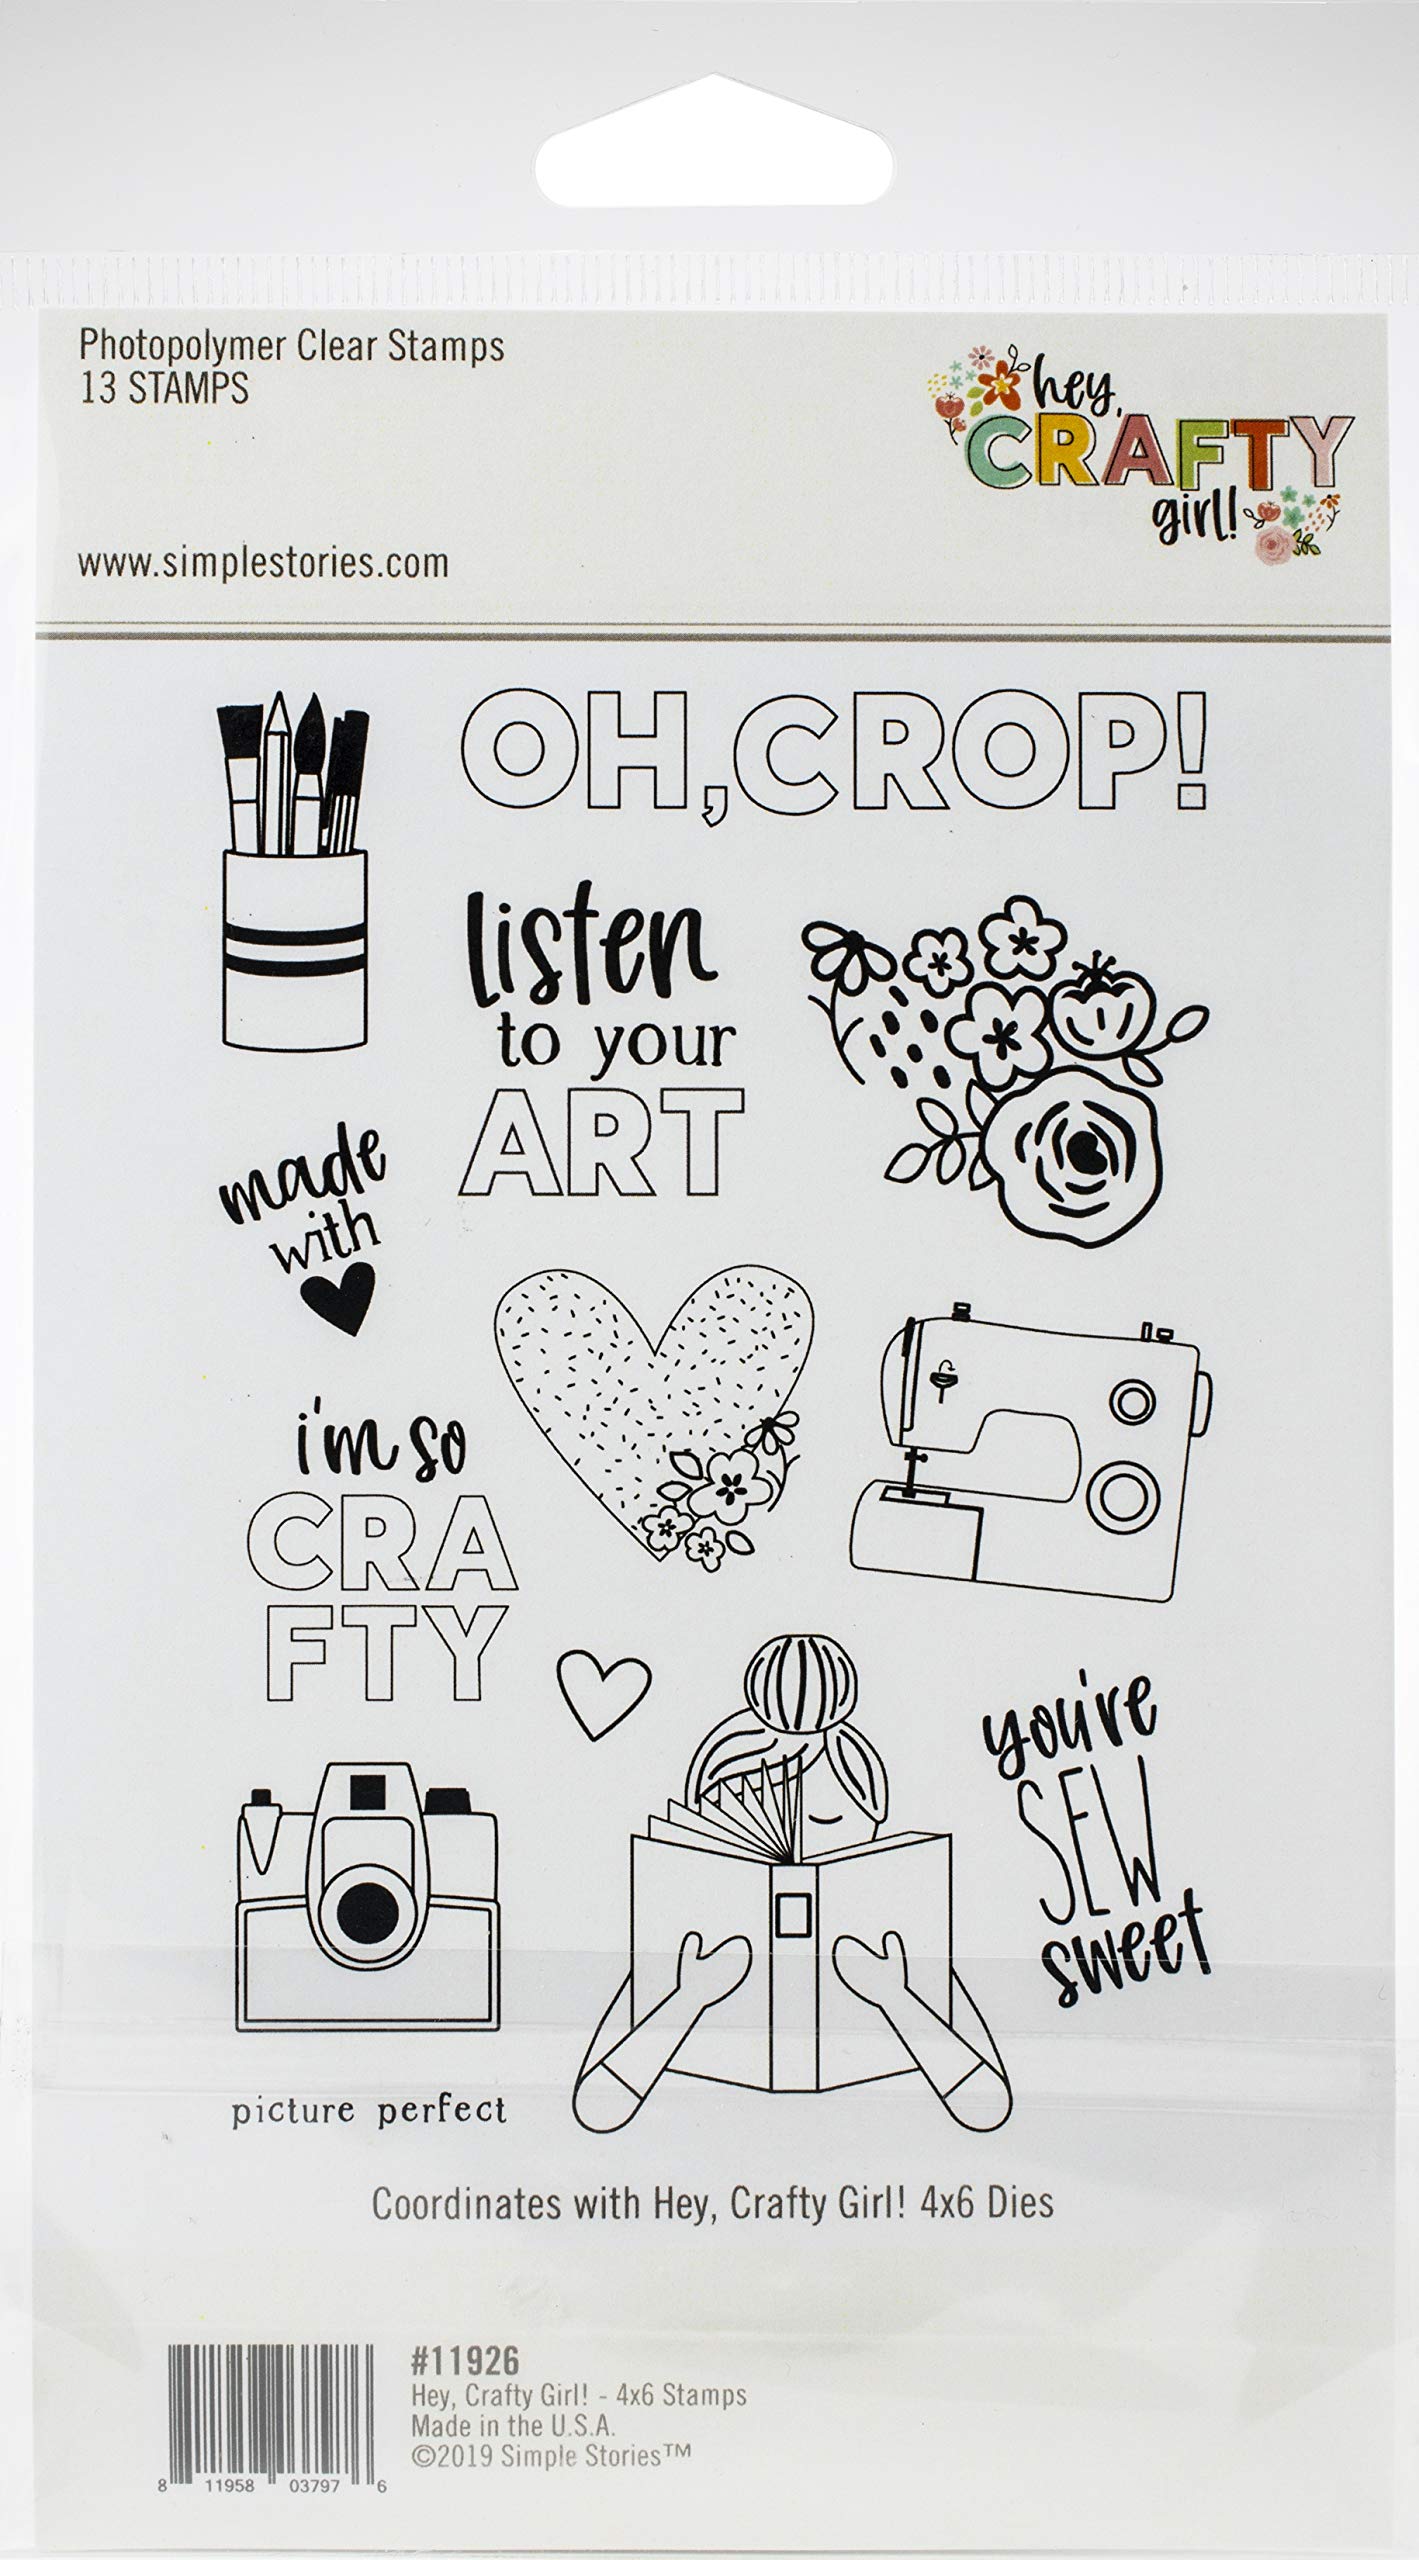 Photopolymer Clear Stamps
13 STAMPS
hey,
CRAFTY
girl!
www.simplestories.com
OH, CROP!
listen
to your
ART
made
with
i'm so
CRA
FTY
you're
SEW
sweet
picture perfect
Coordinates with Hey, Crafty Girl! 4x6 Dies
#11926
Hey, Crafty Girl! - 4x6 Stamps
Made in the U.S.A.
©2019 Simple Stories™
8 11958 03797 6